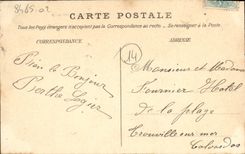 8465-02
CARTE POSTALE
Tous les Pays étrangers n'acceptent pas la Correspondance au recto. - Se renseigner à la Poste.
CORRESPONDANCE
ADRESSE
14
Bien le Bonjour
Berthe Logier
Monsieur et Madame
Fournier Hotel
de la plage
Trouville sur mer
Calvados